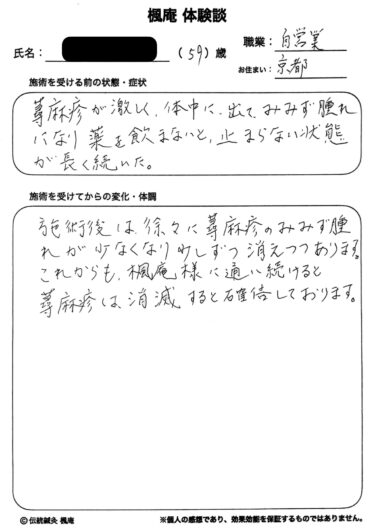 楓庵 体験談
氏名： (59)歳
職業： 自営業
お住まい： 京都
施術を受ける前の状態・症状
蕁麻疹が激しく、体中に、出て みみず腫れ
になり 薬を飲まないと、止まらない状態
が長く続いた。
施術を受けてからの変化・体調
施術後は、徐々に 蕁麻疹のみみず腫
れが少なくなり 少しずつ 消えつつあります。
これからも、楓庵様に通い続けると
蕁麻疹は、消滅すると確信しております。
© 伝統鍼灸 楓庵
※個人の感想であり、効果効能を保証するものではありません。